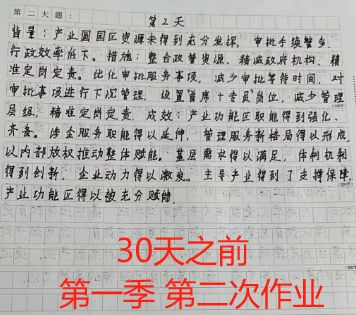 第二大题：
第2天
背景：产业园园区资源未得到充分发挥，审批手续繁多，
行政效率低下。措施：整合政管资源，精减政府机构，精
准定岗定责。优化审批服务事项，减少审批等待时间，对
审批事项进行下沉管理，设置首席+专员岗位，减少管理
层级，精准定岗定责。成效：产业功能区职能得到强化，
齐备。涉企服务职能得以延伸，管理服务新格局得以形成，
以内部放权推动整体赋能。基层需求得以满足，体制机制
得到创新，企业动力得以激发。主导产业得到了支撑保障，
产业功能区得以被充分赋能。
30天之前
第一季 第二次作业